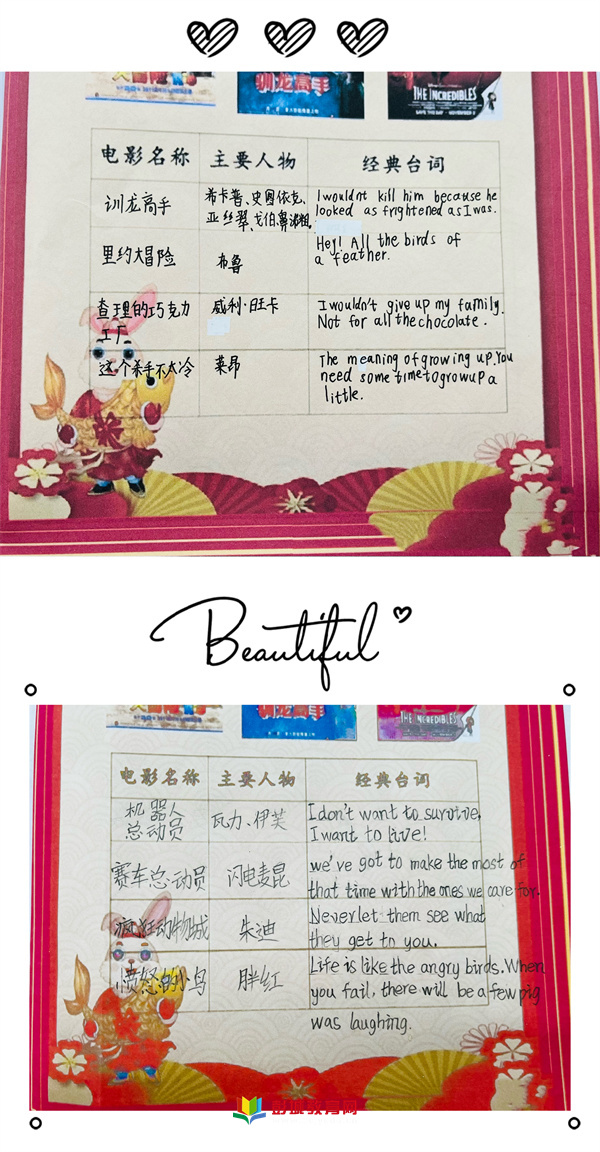 驯龙高手
THE INCREDIBLES
电影名称 主要人物 经典台词
训龙高手
希卡普、史图依克、
亚丝翠、戈伯、
I wouldnt kill him because he
looked as frightened as I was.
里约大冒险
布鲁
Hey! All the birds of
a feather.
查理的巧克力
工厂
威利·旺卡
I wouldn't give up my family.
Not for all the chocolate.
这个杀手不太冷
莱昂
The meaning of growing up. You
need some time to grow up a
little.
Beautiful
驯龙高手
THE INCREDIBLES
电影名称 主要人物 经典台词
机器人
总动员
瓦力、伊芙
I don't want to survive,
I want to live!
赛车总动员
闪电麦昆
we've got to make the most of
that time with the ones we care for.
疯狂动物城
朱迪
Never let them see what
they get to you.
愤怒的小鸟
胖红
Life is like the angry birds. When
you fail, there will be a few pig
was laughing.
彭城教育网